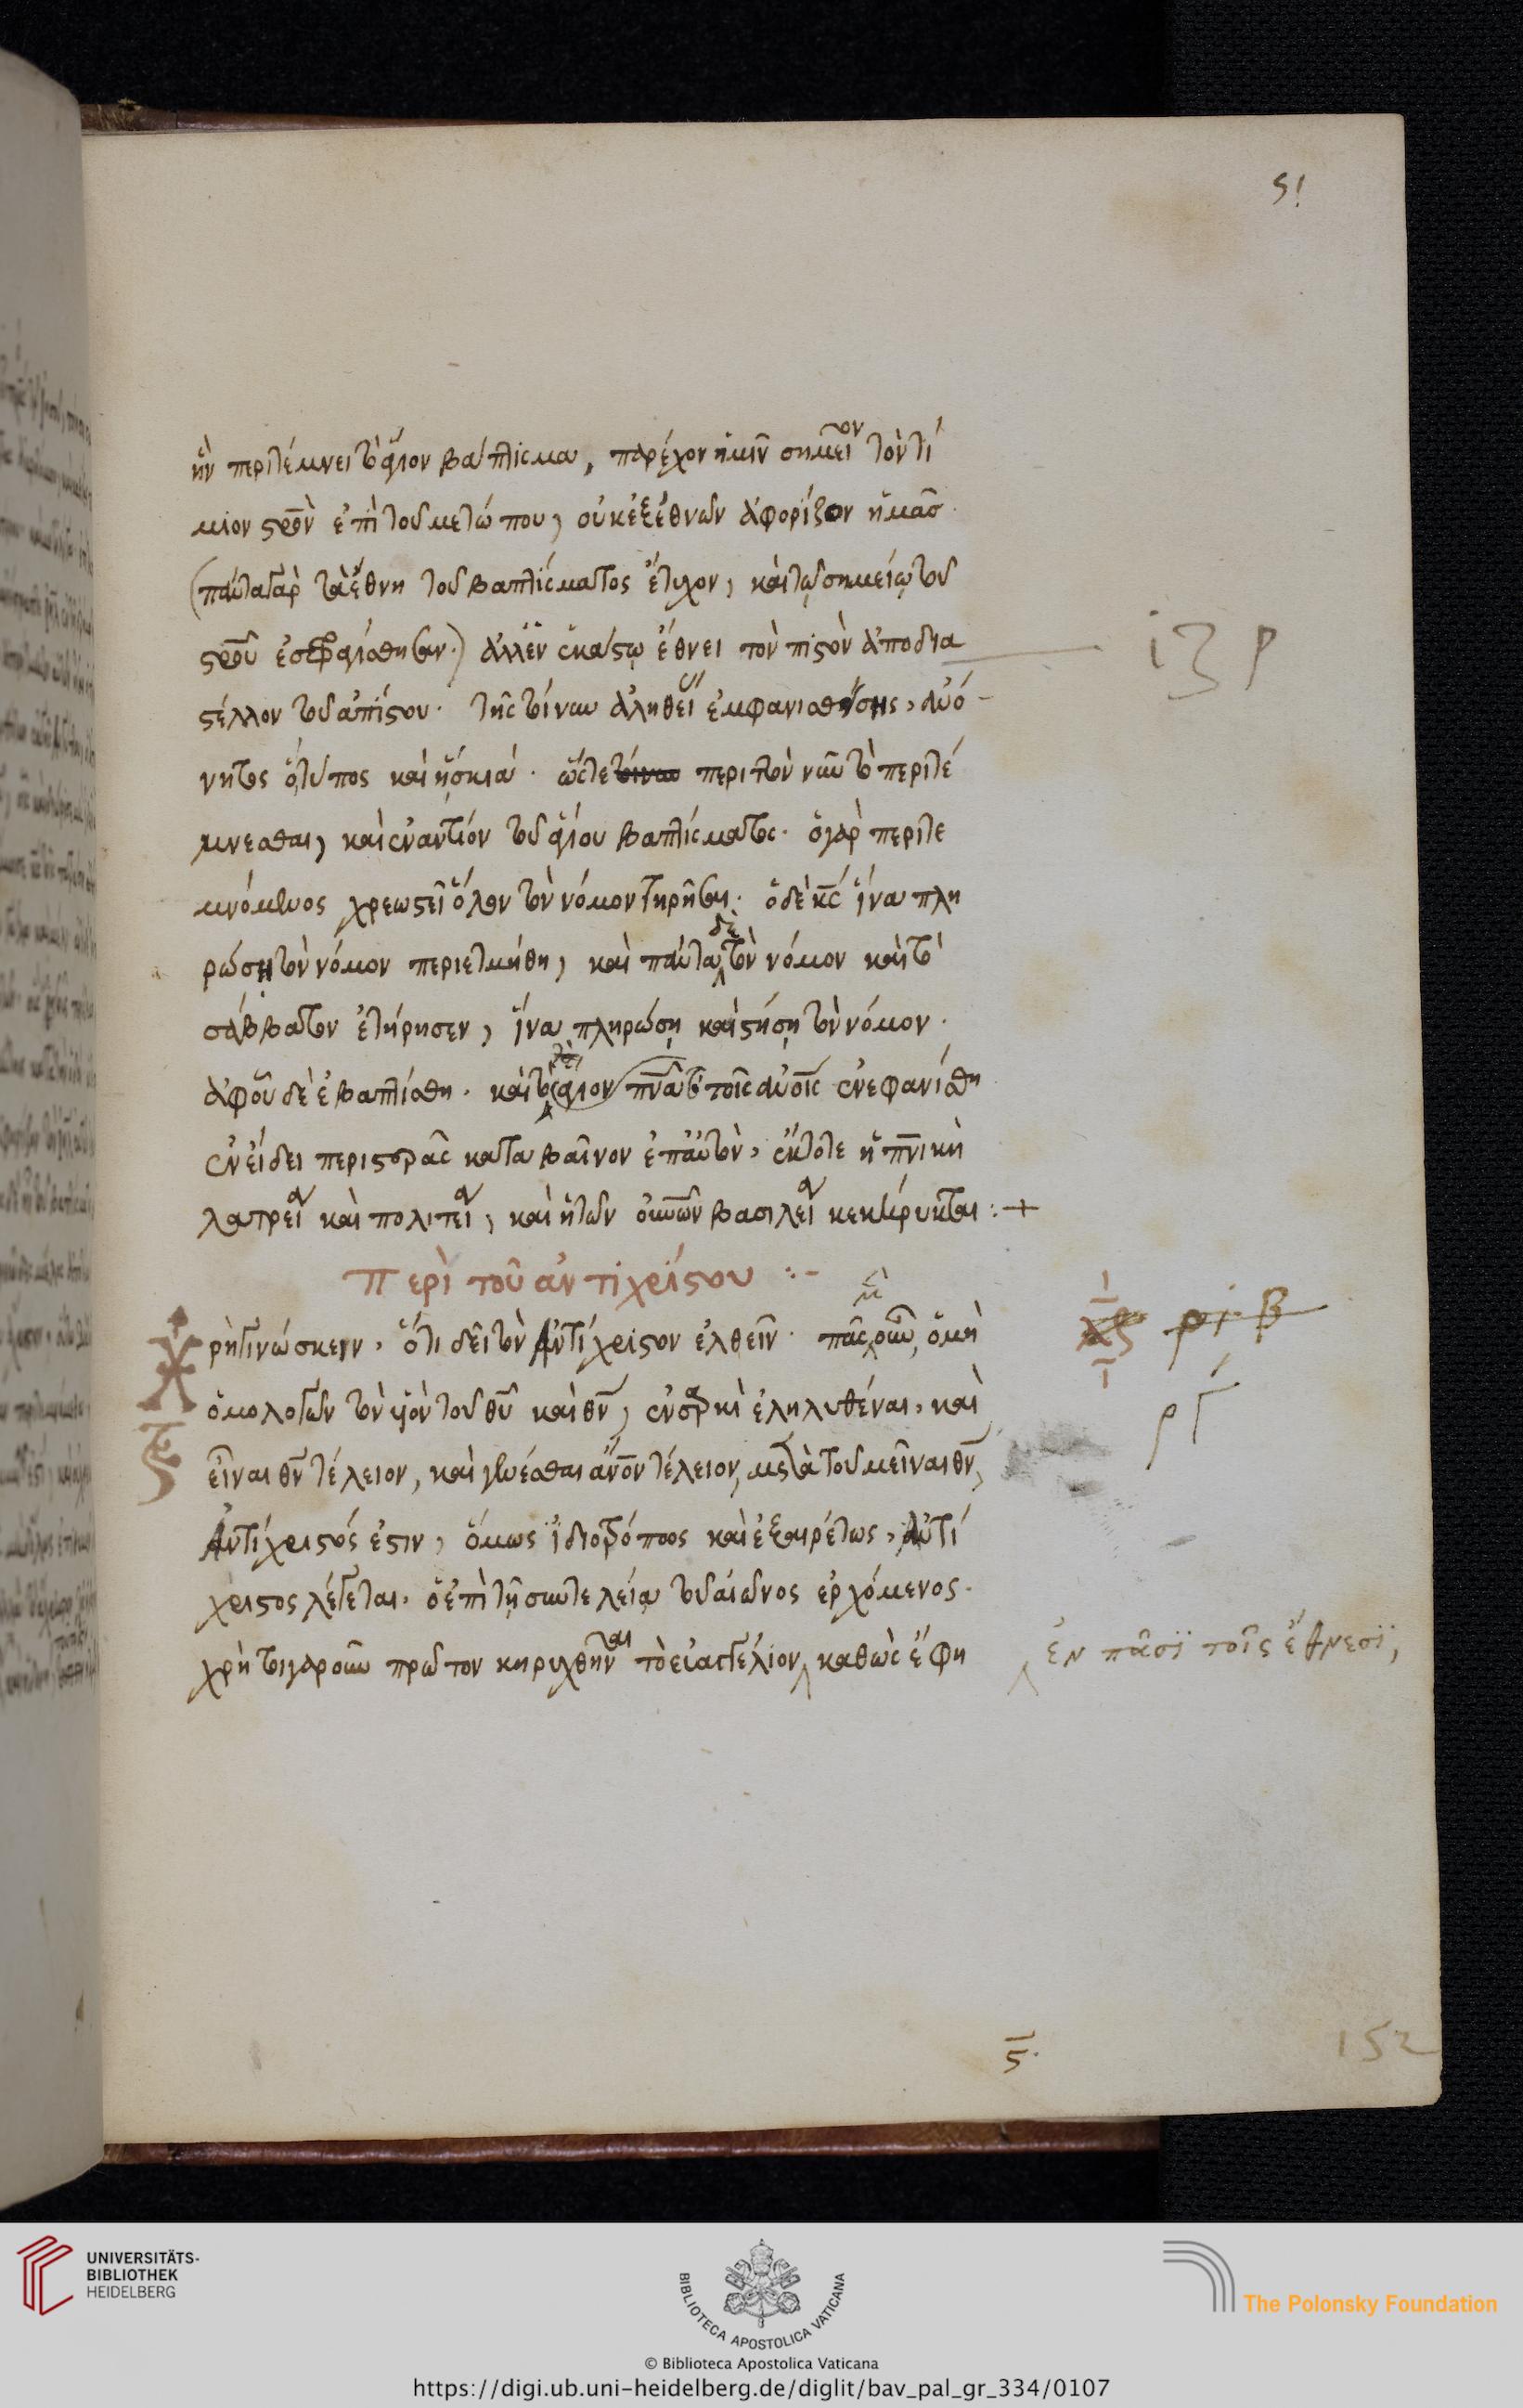 51
ἣν περιτέμνει τὸ ἅγιον βάπτισμα, παρέχον ἡμῖν σημεῖον τὸν τί
μιον στρὸν ἐπὶ τοῦ μετώπου, οὐκ ἐξ ἐθνῶν ἀφορίζον ἡμᾶσ.
(πάντα γὰρ τὰ ἔθνη τοῦ βαπτίσματος ἔτυχον, καὶ τῷ σημείῳ τοῦ
στροῦ ἐσφραγίσθησαν.) ἀλλ' ἐν ἑκάστῳ ἔθνει τὸν πιστὸν ἀποδια
στέλλον τοῦ ἀπίστου. τῆς τοίνυν ἀληθείας ἐμφανισθείσης, ἀνό-
νητος ὁ τύπος καὶ ἡ σκιά. ὥστε τοίνυν περιττὸν νῦν τὸ περιτέ
μνεσθαι, καὶ ἐναντίον τοῦ ἁγίου βαπτίσματος. ὁ γὰρ περιτε
μνόμενος χρεωστεῖ ὅλον τὸν νόμον τηρῆσαι. ὁ δὲ κς ἵνα πλη
ρώσῃ τὸν νόμον περιετμήθη, καὶ πάντα δὲ τὸν νόμον καὶ τὸ
σάββατον ἐτήρησεν, ἵνα πληρώσῃ καὶ στήσῃ τὸν νόμον.
ἀφ' οὗ δὲ ἐβαπτίσθη. καὶ τὸ ἅγιον πνα τοῖς ἀνοις ἐνεφανίσθη
ἐν εἴδει περιστρᾶς καταβαῖνον ἐπ' αὐτὸν, ἔκτοτε ἡ πνικὴ
λατρεία καὶ πολιτεία, καὶ ἡ τῶν οὐνῶν βασιλεία κεκήρυκται :+
περὶ τοῦ ἀντιχρίστου :-
Χρὴ γινώσκειν, ὅτι δεῖ τὸν Ἀντίχριστον ἐλθεῖν. πᾶς μὲν οὖν, ὁ μὴ
ὁμολογῶν τὸν υἱὸν τοῦ θυ καὶ θν, ἐν σαρκὶ ἐληλυθέναι, καὶ
εἶναι θν τέλειον, καὶ γενέσθαι ἄνον τέλειον, μετὰ τοῦ μεῖναι θν,
Ἀντίχριστός ἐστιν, ὅμως ἰδιοτρόπως καὶ ἐξαιρέτως, Ἀντί
χριστος λέγεται, ὁ ἐπὶ τῇ συντελείᾳ τοῦ αἰῶνος ἐρχόμενος.
χρὴ τοιγαροῦν πρῶτον κηρυχθῆναι τὸ εὐαγγέλιον, καθὼς ἔφη
ἐν πᾶσϊ τοῖς ἔθνεσϊ,
ρΓ
ς.
152
UNIVERSITÄTS-
BIBLIOTHEK
HEIDELBERG
BIBLIOTECA APOSTOLICA VATICANA
The Polonsky Foundation
© Biblioteca Apostolica Vaticana
https://digi.ub.uni-heidelberg.de/diglit/bav_pal_gr_334/0107